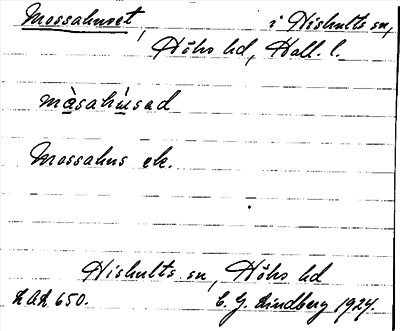 Mossahuset, i Hishults sn,
Höks hd, Hall. l.
màsahùsad
Mossahus ek.
Hishults sn, Höks hd
LAL 650. C. G. Lindberg 1924